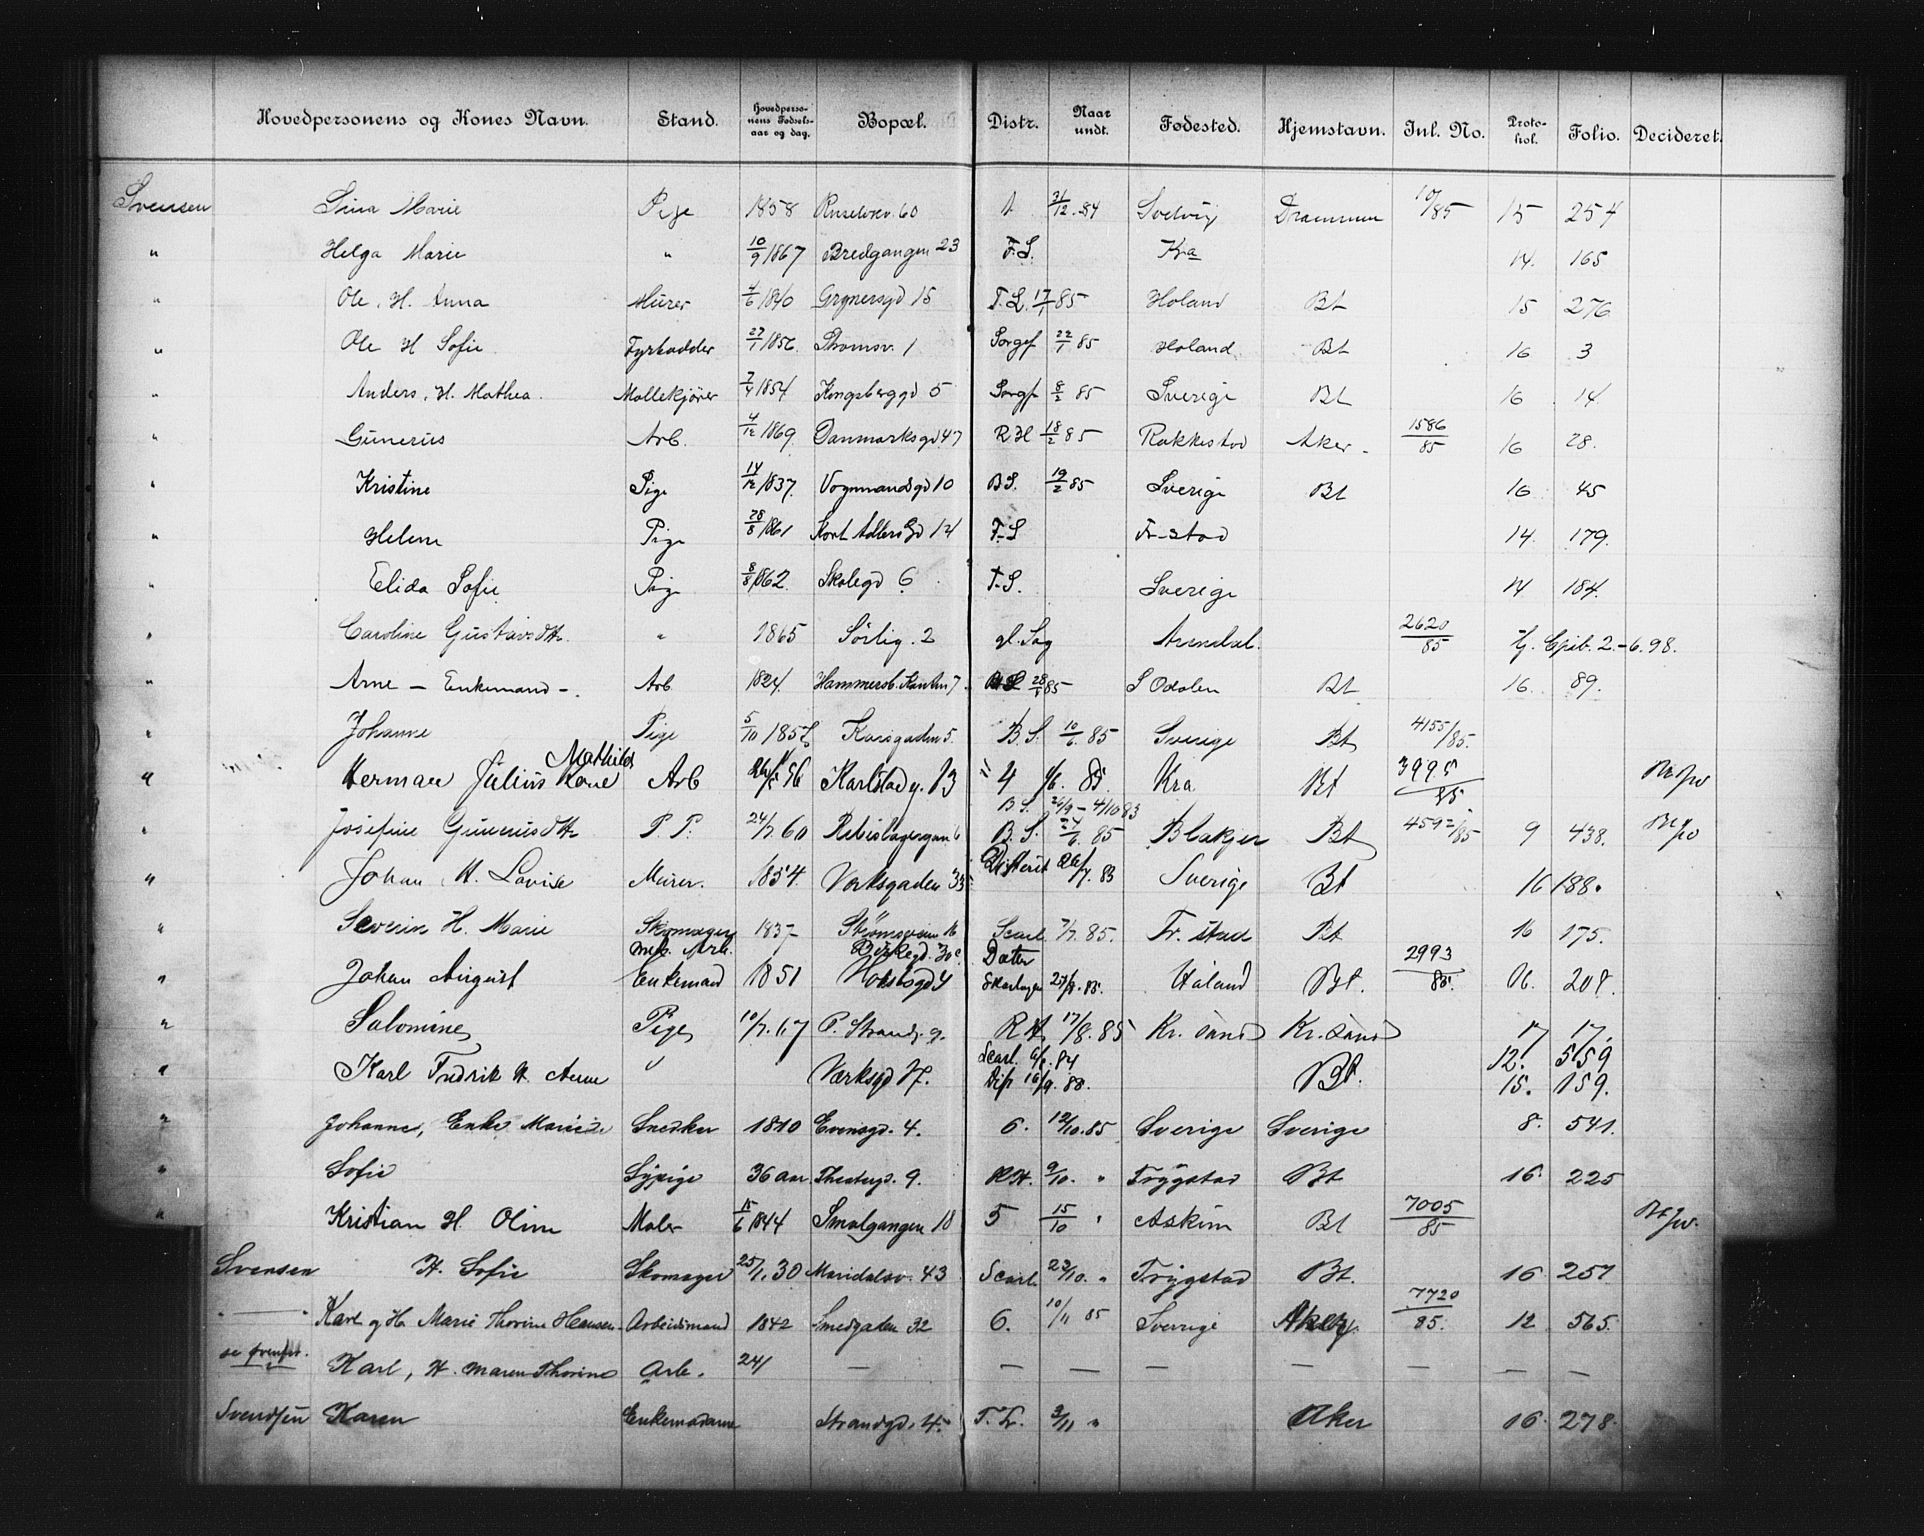 Hovedpersonens og Kones Navn. Stand. Hovedperso-nens Fødsels-aar og dag. Bopæl. Distr. Naar undt. Fødested. Hjemstavn. Inl. No. Proto-kol. Folio. Decideret.
Svensen Lina Marie Pige 1858 60 1 31/12.84 Svelvig Drammen 10/85 15 254
" Helga Marie " 10/9 1867 Bredgangen 23 F.S. Kra 14. 165
" Ole, H. Anna Murer 4/6 1840 Grønersgd 15 17/1 85 Høland Bt 15 276
" Ole H Sofie Fyrbødder 27/1 1856 Strømsv. 1 Sorgf 22/1 85 Høland Bt 16 3
" Anders, H. Mathea. Møllekjører 7/4 1854 Kongsberggd 5 Sorgf 8/2 85 Sverige Bt 16 14
" Gunerius Arb. 4/12 1869 Danmarksgd 47 R.H 18/2 85 Rakkestad Aker - 1586/85 16 28.
" Kristine Pige 14/12 1837. Vognmandsgd 10 B.S. 19/2 85 Sverige Bt 16 45
" Helene Pige 28/8 1861 Kort Adlers Gd 12 F.S Fr-stad 14 179.
" Elida Sofie Pige 8/8 1862. Skolegd 6 F.S. Sverige 14 184.
" Caroline Gustavsdtr. " 1865 Sørlig. 2 gl. Sag Arendal. 2620/85 2.-6.98.
" Arne - Enkemand -. Arb 1824. Hammersb. 7 28/ 85 S Odalen Bt 16. 89.
" Johanne Pige 5/10 1857 Korsgaden 5. B.S. 10/6. 85 Sverige Bt 4155/85.
" Herman Julius Kone Mathilde Arb 56 Karlstadg. 13 4 /6. 85. Kra Bt 3995/85
B.S. 26/9 - 4/10 83
" Josefine Gunerusdtr P. P. 24/7 60 6 B.S. 24/6. 85 Blakjer Bt 4592/85 9 438.
" Johan H. Lovise Murer. 1854. Verksgaden 33. District 26/7. 83 Sverige Bt 16 188.
" Severin H. Marie Skomager 1837 Strømsveien 16 Scarl 7/7. 85. Fr. stad Bt 16 175.
mek. Arb. Birkegd. 30c Døtre 2993
" Johan August Enkemand 1851 Holstsgd 4 Skarlagen 27/8. 85. Høland Bt. 85. 16. 208.
" Salomine Pige 10/7. 67 P. Strandg. 9. R H 17/8. 85 Kr. sand Kr. sand 17 17.
" Karl Fredrik H. Anne " Værksgd 17. Scarl. 84 Bt. 12. 559
Dif 16/9. 88. 15. 159.
" Johannes, Enke Marie Snedker 1810 Evensgd. 4. 6. 12/10.85 Sverige Sverige 8. 541.
" Sofie Sypige 36 aar. Thesteg. 9. R.H. 9/10. " Trygstad Bt 16 225
" Kristian H. Oline Maler 15/6 1844 Smalgangen 10 5 15/10 " Askim Bt 7005/85
Svensen H. Sofie Skomager 25/1. 30 Maridalsv. 43 Scarl. 22/10. " Trygstad Bt. 16 257
" — " Karl og H. Marie Thorine Hansen Arbeidsmand 1842 Smedgaden 32 6. 10/11 85 Sverige Aker 7720/85. 12 565.
se Karl, H. Maren Thorine Arb. 241 — — — — — — — —
Svendsen Karen Enkemadame Strandgd. 4 2/11 " Aker 16 278.